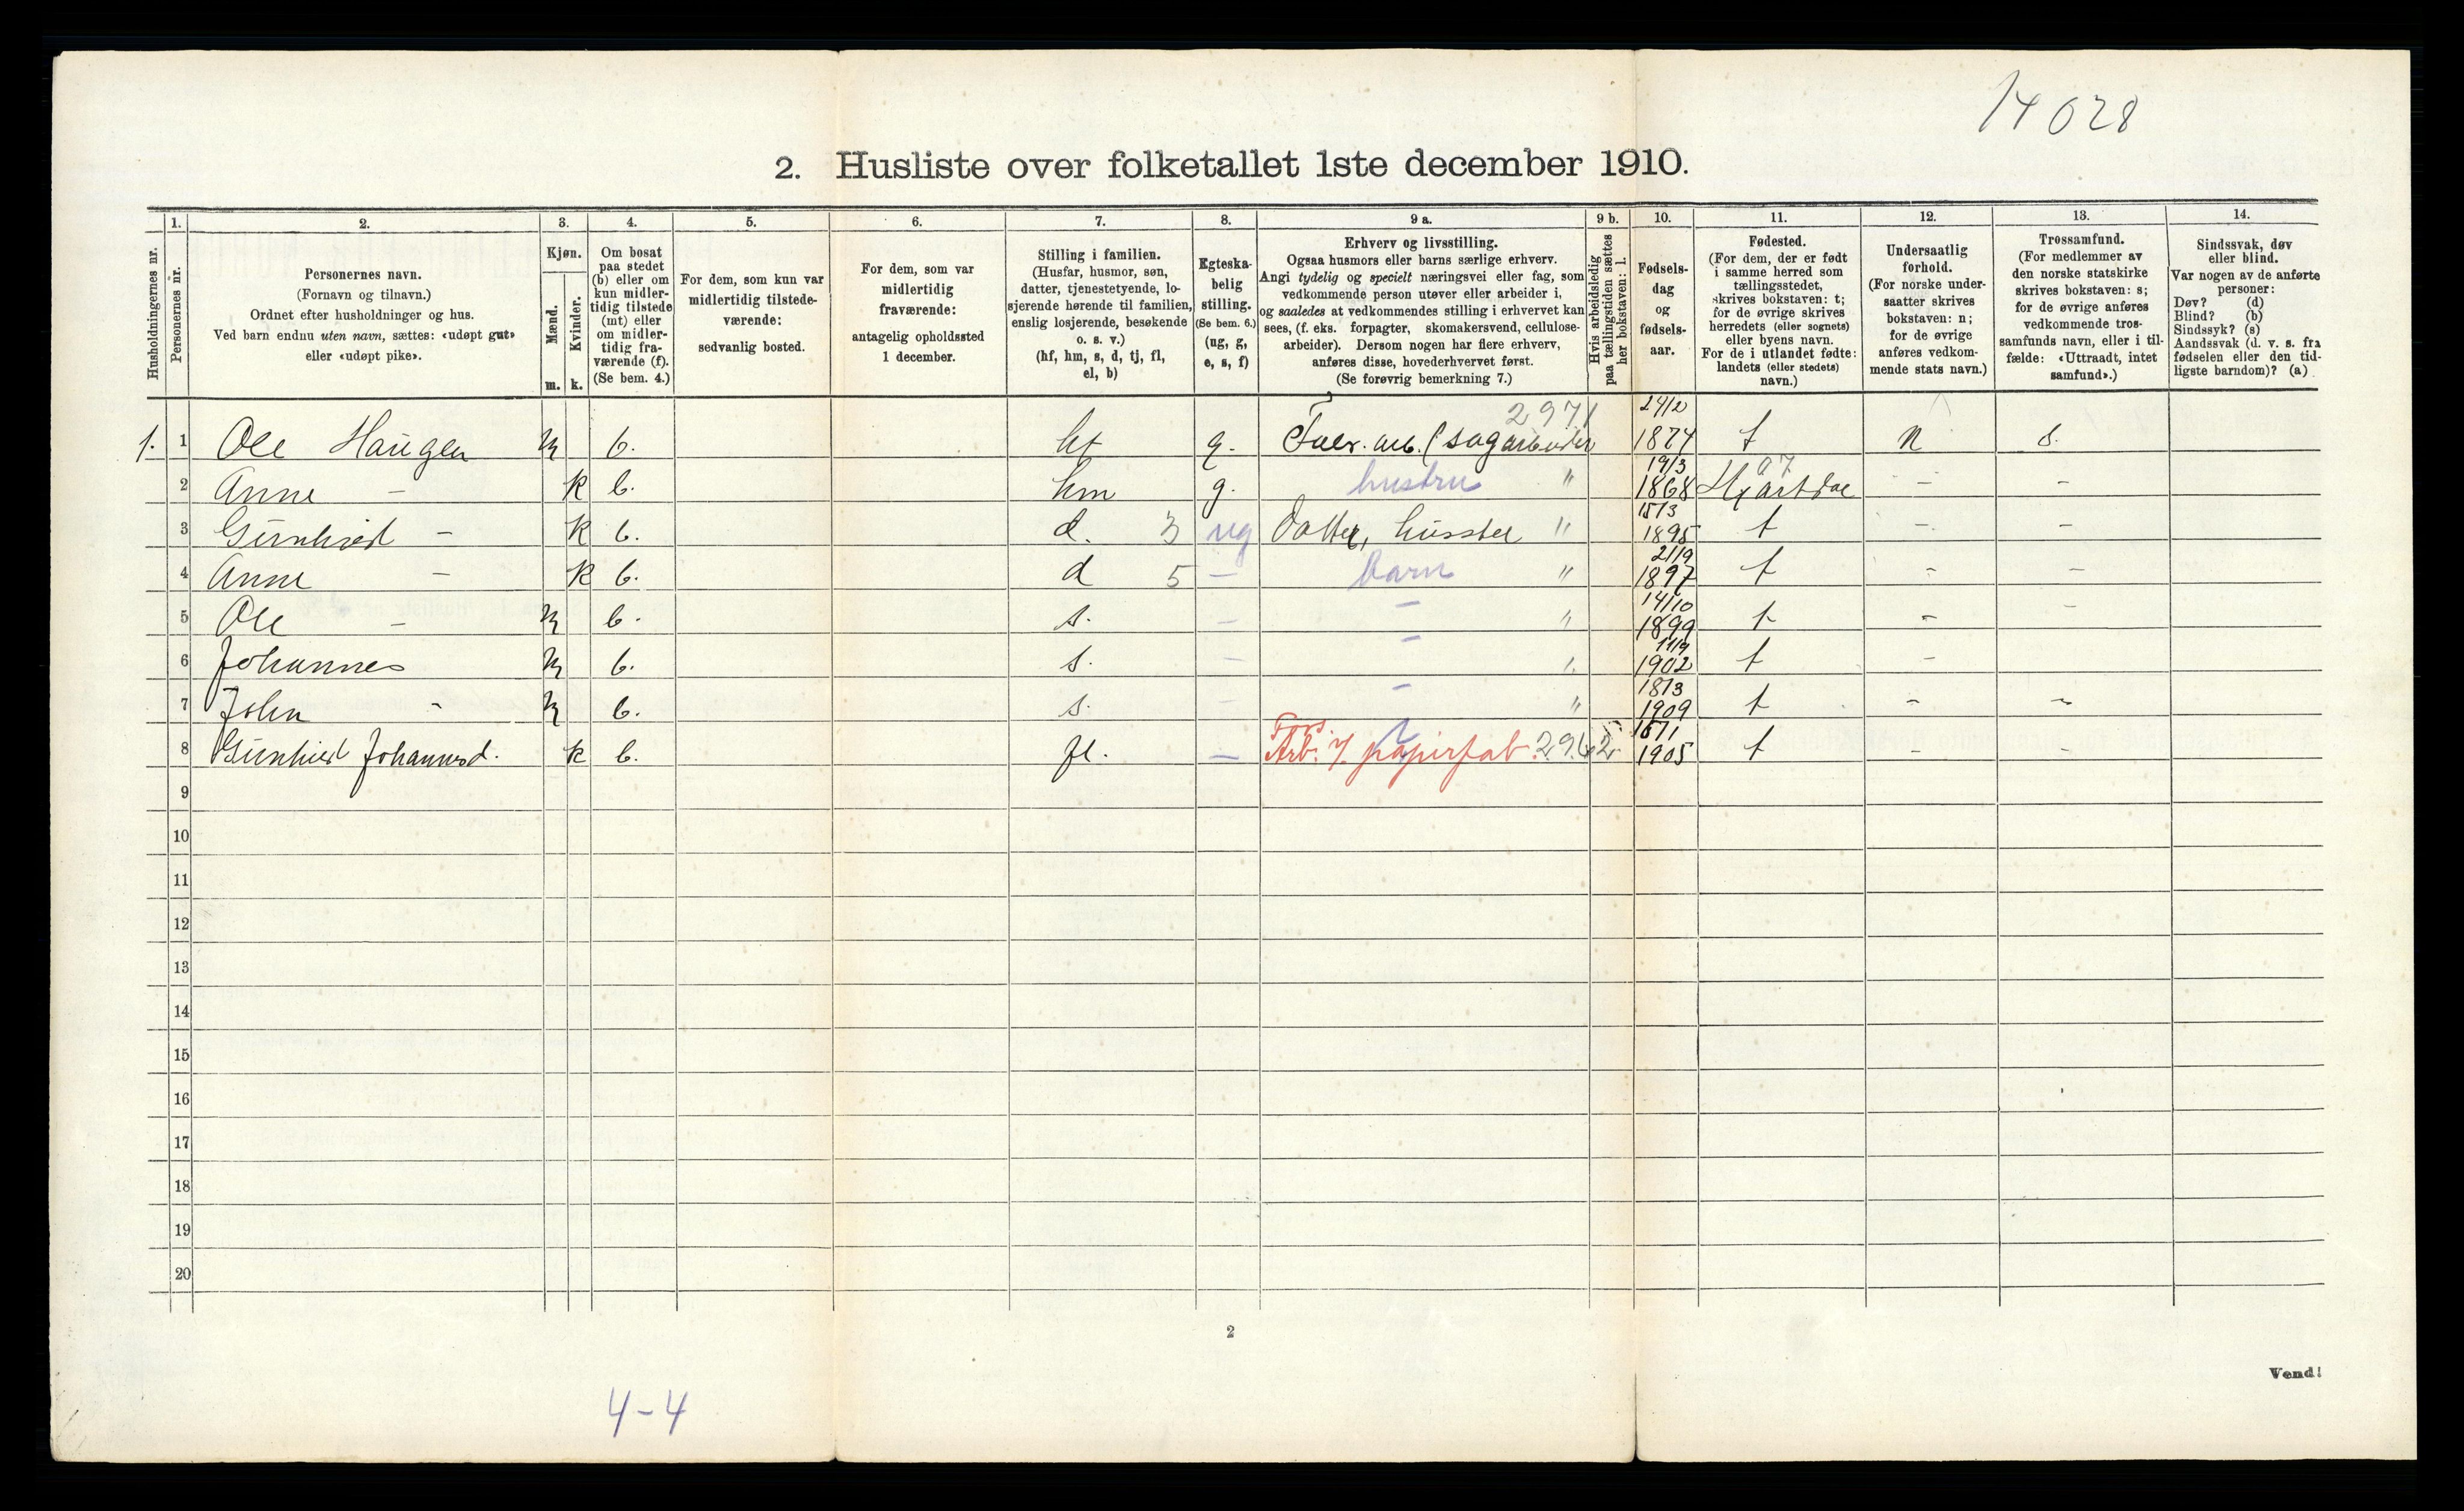 14028
2. Husliste over folketallet 1ste december 1910.
Husholdningernes nr.
1.
Personernes nr.
2.
Personernes navn.
(Fornavn og tilnavn.)
Ordnet efter husholdninger og hus.
Ved barn endnu uten navn, sættes: «udøpt gut»
eller «udøpt pike».
3.
Kjøn.
Mænd.
m.
Kvinder.
k.
4.
Om bosat
paa stedet
(b) eller om
kun midler-
tidig tilstede
(mt) eller
om midler-
tidig fra-
værende (f).
(Se bem. 4.)
5.
For dem, som kun var
midlertidig tilstede-
værende:
sedvanlig bosted.
6.
For dem, som var
midlertidig
fraværende:
antagelig opholdssted
1 december.
7.
Stilling i familien.
(Husfar, husmor, søn,
datter, tjenestetyende, lo-
sjerende hørende til familien,
enslig losjerende, besøkende
o. s. v.)
(hf, hm, s, d, tj, fl,
el, b)
8.
Egteska-
belig
stilling.
(Se bem. 6.)
(ug, g,
e, s, f)
9 a.
Erhverv og livsstilling.
Ogsaa husmors eller barns særlige erhverv.
Angi tydelig og specielt næringsvei eller fag, som
vedkommende person utøver eller arbeider i,
og saaledes at vedkommendes stilling i erhvervet kan
sees, (f. eks. forpagter, skomakersvend, cellulose-
arbeider). Dersom nogen har flere erhverv,
anføres disse, hovederhvervet først.
(Se forøvrig bemerkning 7.)
9 b.
Hvis arbeidsledig
paa tællingstiden sættes
her bokstaven: l.
10.
Fødsels-
dag
og
fødsels-
aar.
11.
Fødested.
(For dem, der er født
i samme herred som
tællingsstedet,
skrives bokstaven: t;
for de øvrige skrives
herredets (eller sognets)
eller byens navn.
For de i utlandet fødte:
landets (eller stedets)
navn.)
12.
Undersaatlig
forhold.
(For norske under-
saatter skrives
bokstaven: n;
for de øvrige
anføres vedkom-
mende stats navn.)
13.
Trossamfund.
(For medlemmer av
den norske statskirke
skrives bokstaven: s;
for de øvrige anføres
vedkommende tros-
samfunds navn, eller i til-
fælde: «Uttraadt, intet
samfund».)
14.
Sindssvak, døv
eller blind.
Var nogen av de anførte
personer:
Døv? (d)
Blind? (b)
Sindssyk? (s)
Aandssvak (d. v. s. fra
fødselen eller den tid-
ligste barndom)? (a)
1. 1 Ole Haugen m b. hf g. 2971 arb. (sagarbeider 24/2 1874 t n s.
2 Anne - k b. hm g. hustru " 19/3 1868 97 Hjartdal - -
3 Gunhild - k b. d. 3 ug Datter, husstel " 15/3 1895 t - -
4 Anne - k b. d 5 - barn " 21/9 1897 t - -
5 Ole - m b. s. - - " 14/10 1899 t - -
6 Johannes m b. s. - - 1902 t -
7 John - m b. s. - - " 18/3 1909 t - -
8 Gunhild Johannesd. k b. fl. - Fors. Arb. v. papirfab. 1905 t - -
9
10
11
12
13
14
15
16
17
18
19
20
2
Vend!
4-4